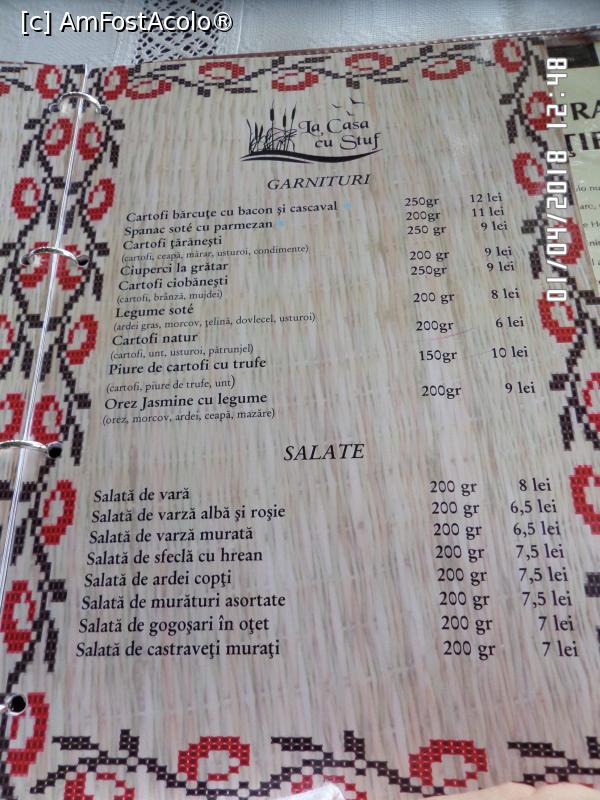 [c] AmFostAcolo®
La Casa
cu Stuf
GARNITURI
Cartofi bărcuţe cu bacon şi cascaval 250gr 12 lei
Spanac soté cu parmezan 200gr 11 lei
Cartofi ţărăneşti 250 gr 9 lei
(cartofi, ceapă, mărar, usturoi, condimente)
Ciuperci la grătar 200 gr 9 lei
Cartofi ciobăneşti 250gr 9 lei
(cartofi, brânză, mujdei)
Legume soté 200 gr 8 lei
(ardei gras, morcov, ţelină, dovlecel, usturoi)
Cartofi natur 200gr 6 lei
(cartofi, unt, usturoi, pătrunjel)
Piure de cartofi cu trufe 150gr 10 lei
(cartofi, piure de trufe, unt)
Orez Jasmine cu legume 200gr 9 lei
(orez, morcov, ardei, ceapă, mazăre)
SALATE
Salată de vară 200 gr 8 lei
Salată de varză albă şi roşie 200 gr 6,5 lei
Salată de varză murată 200 gr 6,5 lei
Salată de sfeclă cu hrean 200 gr 7,5 lei
Salată de ardei copţi 200 gr 7,5 lei
Salată de murături asortate 200 gr 7,5 lei
Salată de gogoşari în oţet 200 gr 7 lei
Salată de castraveţi muraţi 200 gr 7 lei
10/04/2018 12:48